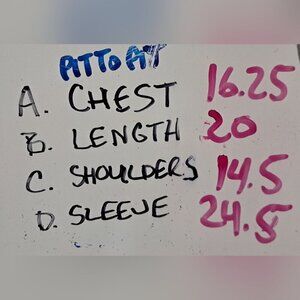 PIT TO PIT
A. CHEST 16.25
B. LENGTH 20
C. SHOULDERS 14.5
D. SLEEVE 24.5